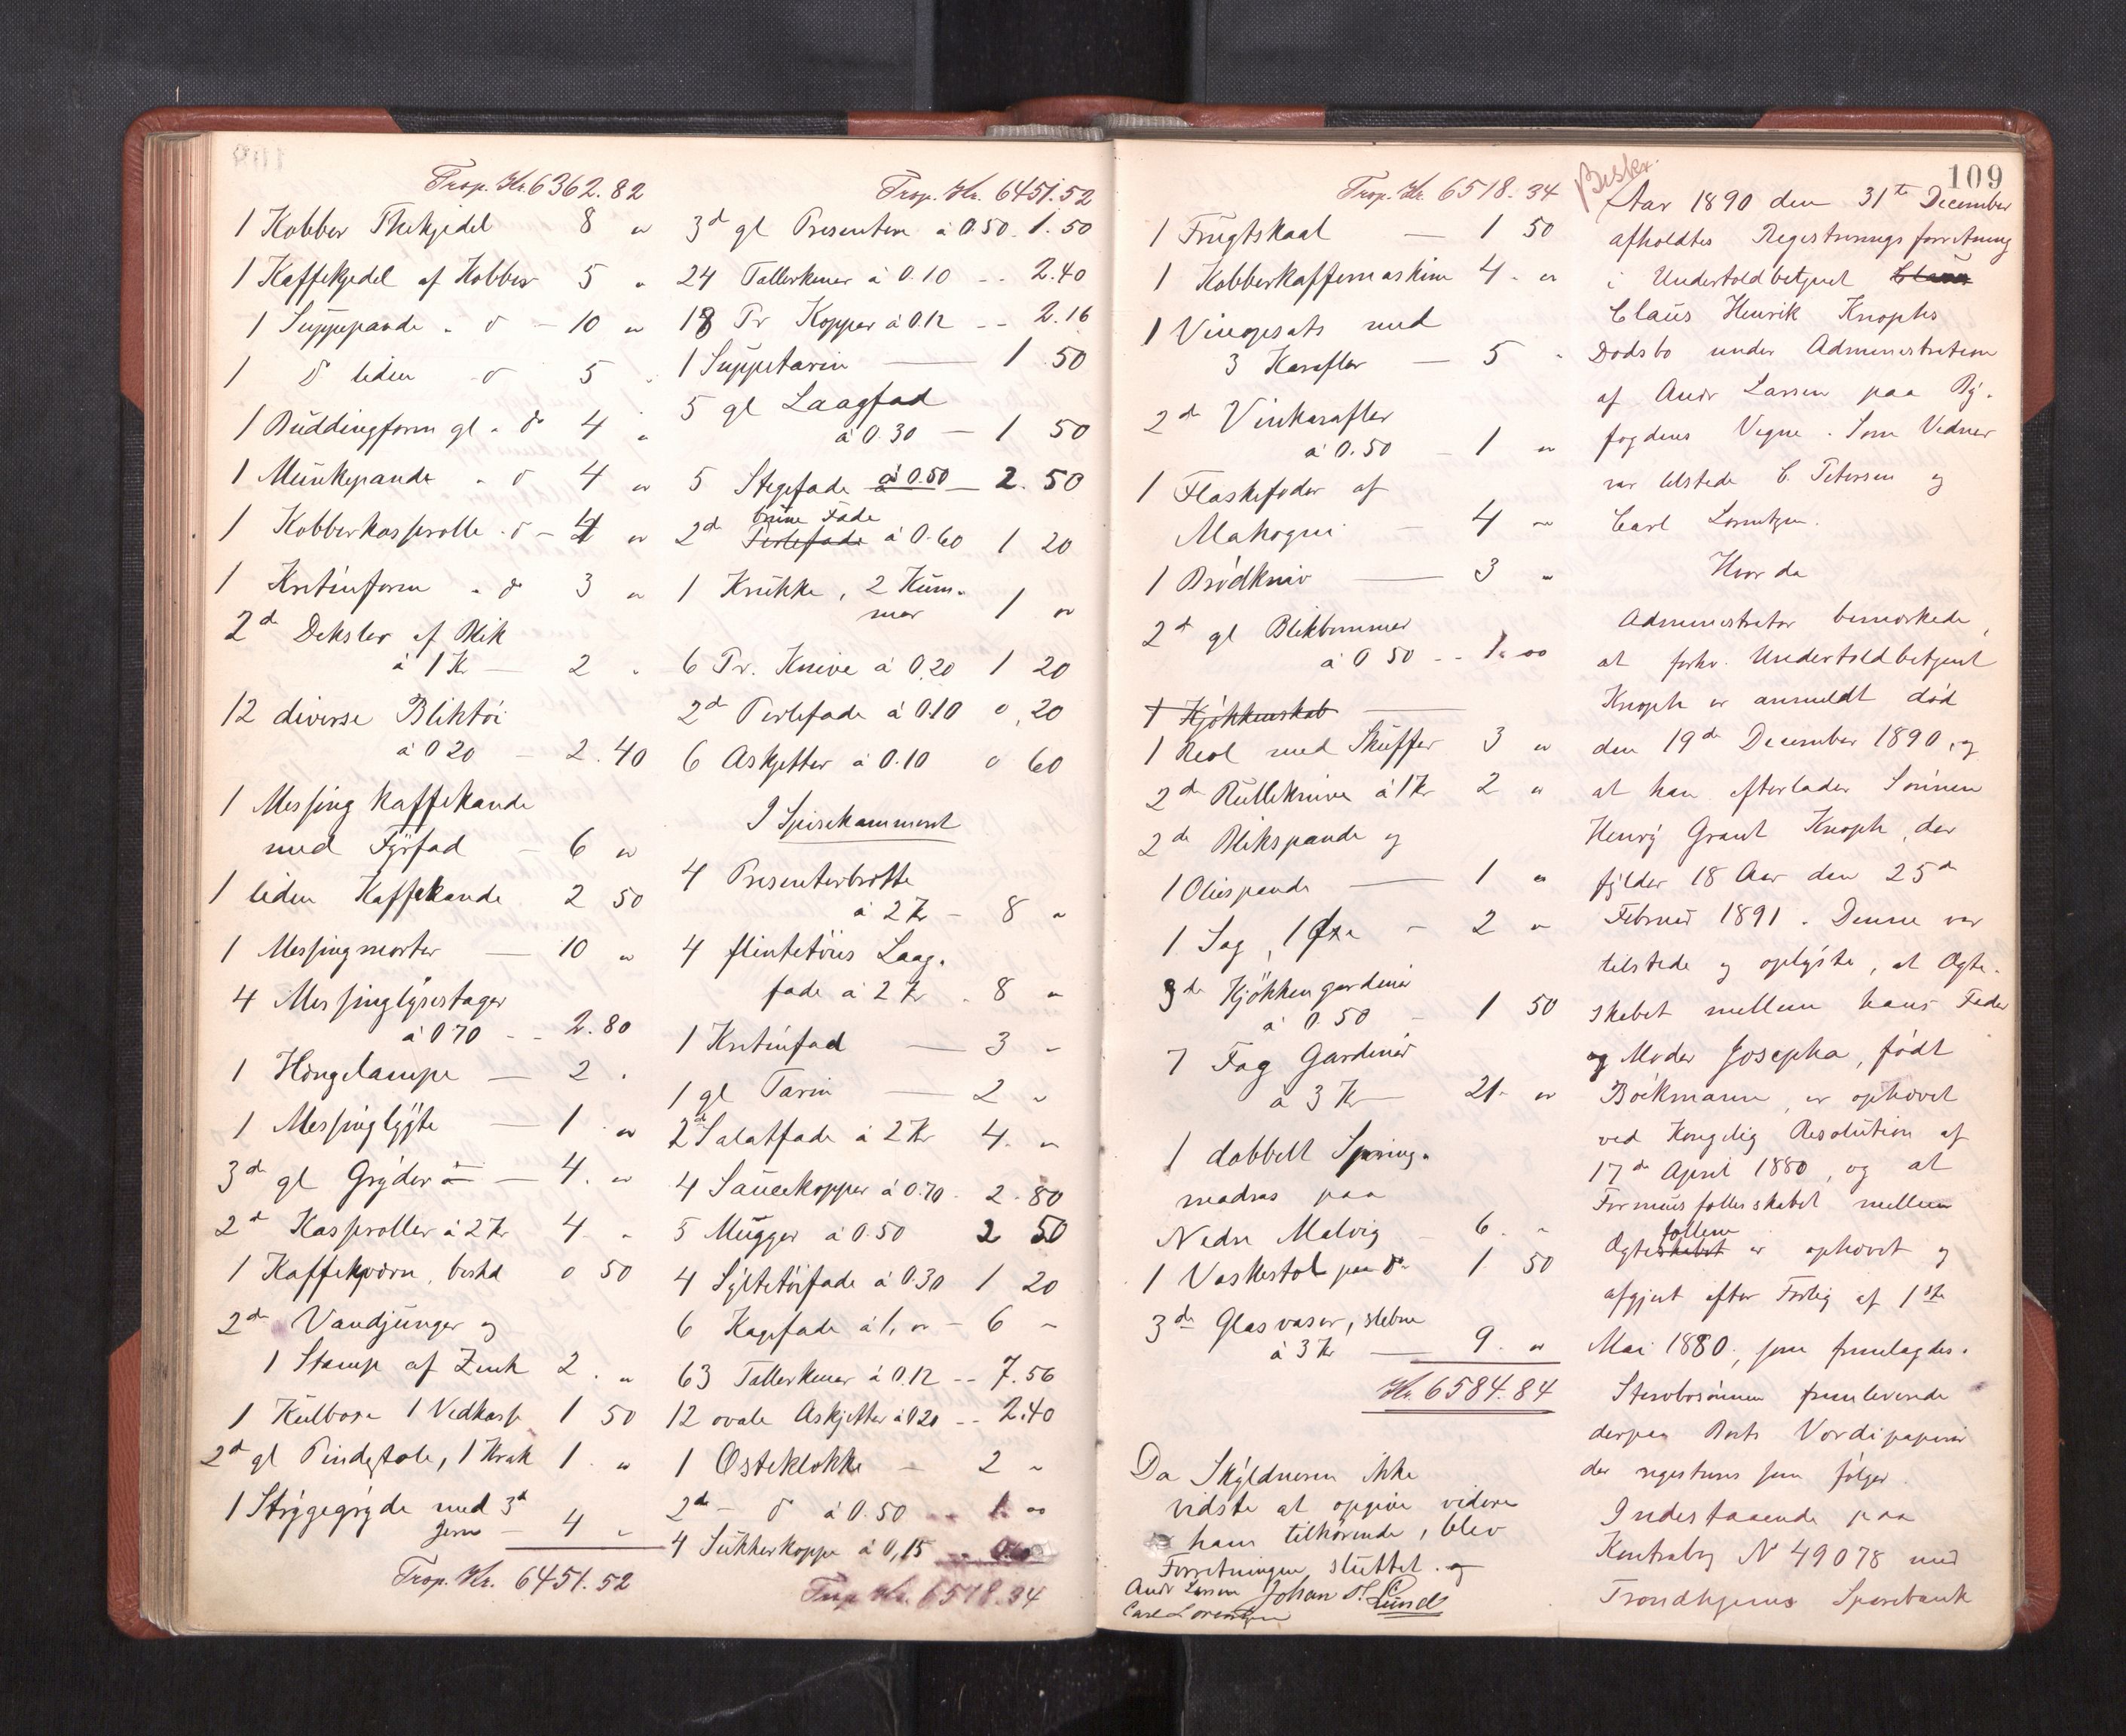 Trsp. Kr. 6362.82
1 Kobber Thekjedel 8 "
1 Kaffekjedel af Kobber 5 "
1 Suppepande " do - 10 "
1 do liden do 5 "
1 Buddingform gl " do 4 "
1 Munkepande " do 4 "
1 Kobberkasserolle " do - 4 "
1 Kretinform " do 3 "
2de Deksler af Blik
à 1 Kr - 2 "
12 diverse Bliktöi
à 0 20 - 2.40
1 Messing Kaffekande
med Fyrfad - 6 "
1 liden Kaffekande 2 50
1 Messingmorter - 10 "
4 Messinglysestager
à 0 70 - - 2.80
1 Hængelampe - 2 "
1 Messinglygte - 1 "
3de gl Gryder à - 4. "
2de Kasseroller à 2 Kr 4. "
1 Kaffekværn, beskd 0 50
2de Vandjunger og
1 Stamp af Zink 2. "
1 Kulboxe 1 Vedkasse 1 50
2de gl Pindestole, 1 Krak 1. "
1 Strygegryde med 3de
Jern - 4 "
Trsp. Kr. 6451.52
Trsp. Kr. 6451.52
3de gl Presentere à 0.50. 1.50
24 Tallerkener à 0.10 - - 2.40
18 Pr Kopper à 0.12 - - 2.16
1 Suppetarin - 1.50
5 gl Laagfad
à 0.30 - 1 50
5 Stegefade à 0.50 - 2.50
brune Fade
2de Perlefade à 0.60 1 20
1 Krukke, 2 Kum-
mer 1 "
6 Pr. Knive à 0.20 1 20
2de Perlefade à 0.10 0.20
6 Askjetter à 0.10 0 60
I Spisekammeret
4 Presenterbrette
à 2 Kr - 8 "
4 flintetöis Laag-
fade à 2 Kr. 8 "
1 Kretinfad - 3 "
1 gl Tarin - 2 "
2de Salatfade à 2 Kr 4. "
4 Saucekopper à 0.70. 2.80
5 Mugger à 0.50 2 50
4 Syltetöifade à 0.30 1 20
6 Kagefade à 1, " - 6 "
63 Tallerkener à 0.12 - - 7.56
12 ovale Askjetter à 0 20 - - 2.40
1 Osteklokke - 2 "
2de - do à 0.50 - - 1. 00
4 Sukkerkoppe à 0,15 - - 0.60
Trsp Kr. 6518.34
Trsp. Kr. 6518.34
1 Frugtskaal - 1 50
1 Kobberkaffemaskine 4. "
1 Vinopsats med
3 Karafler - 5 "
2de Vinkarafler
à 0.50 - 1 "
1 Flaskefoder af
Mahogni - 4 "
1 Brödkniv - 3 "
2de gl Blikbommer
à 0 50 - - 1.00
1 Kjökkenskab
1 Reol med Skuffer 3 "
2de Rulleknive à 1 Kr 2 "
2de Blikspande og
1 Oliespande - 1 "
1 Sag, 1 Øxe - 2 "
3de Kjökkengardiner
à 0.50 - 1 50
7 Fag Gardiner
à 3 Kr - 21. "
1 dobbelt Spring-
madras paa
Nedre Malvig 6. "
1 Vaskestol paa do 1. 50
3de Glasvaser, slebne
à 3 Kr - 9. "
Kr. 6584.84
Da Skyldneren ikke
vidste at opgive videre
ham tilhørende, blev
Forretningen sluttet. og
Andr Larsen Johan H. Lund
Carl Lorentzen
Beskr.
109
Aar 1890 den 31te December
afholdtes Registreringsforretning
i Undertoldbetjent Claus
Claus Henrik Knophs
Dødsbo under Administration
af Andr Larsen paa By-
fogdens Vegne. Som Vidner
var tilstede C. Petersen og
Carl Lorentzen.
Hvorda
Administrator bemærkede,
at forhv. Undertoldbetjent
Knoph er anmeldt død
den 19de December 1890, og
at han efterlader Sønnen
Henry Grant Knoph, der
fylder 18 Aar den 25de
Februar 1891. Denne var
tilstede og oplyste, at Ægte-
skabet mellem hans Fader
og Moder Josepha, født
Böckmann, er ophævet
ved Kongelig Resolution af
17de April 1880, og at
Formuesfællesskabet mellem
fællerne
Ægteskabet er ophævet og
afgjort efter Forlig af 1ste
Mai 1880, som fremlagdes.
Stervbosønnen fremleverede
derpaa Boets Værdipapirer
der registreres som følger.
Indestaaende paa
Kontrabog N 49078 med
Trondhjems Sparebank